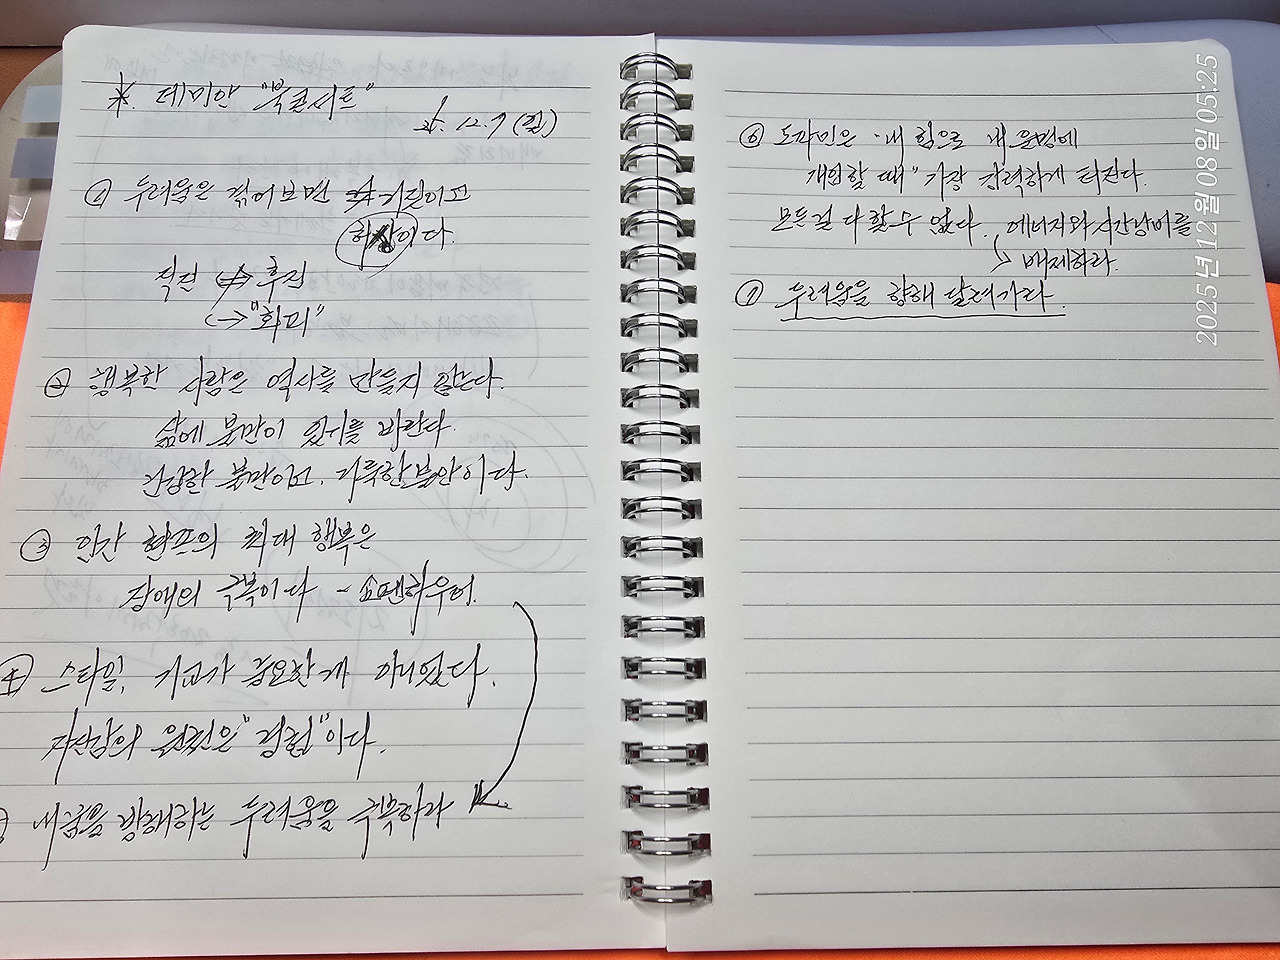 *. 데미안 "북콘서트"
25. 12. 7 (일)
① 두려움은 겪어보면 거짓이고
허상이다.
직진 ↔ 후진
↔ "회피"
② 행복한 사람은 역사를 만들지 않는다.
삶에 불만이 있기를 바란다.
건강한 불만이고, 거룩한 불만이다.
③ 인간 최대 행복은
장애의 극복이다 - 쇼펜하우어.
④ 스타일, 기교가 중요한게 아니었다.
자신감의 원천은 "경험"이다.
내 꿈을 방해하는 두려움을 극복하라
⑥ 도파민은 "내 힘으로 내 운명에
개입할 때" 가장 강력하게 터진다.
모든걸 다 할 수 없다. 에너지와 시간낭비를
배제하라.
⑦ 두려움을 향해 달려가라.
2025년 12월 08일 05:25